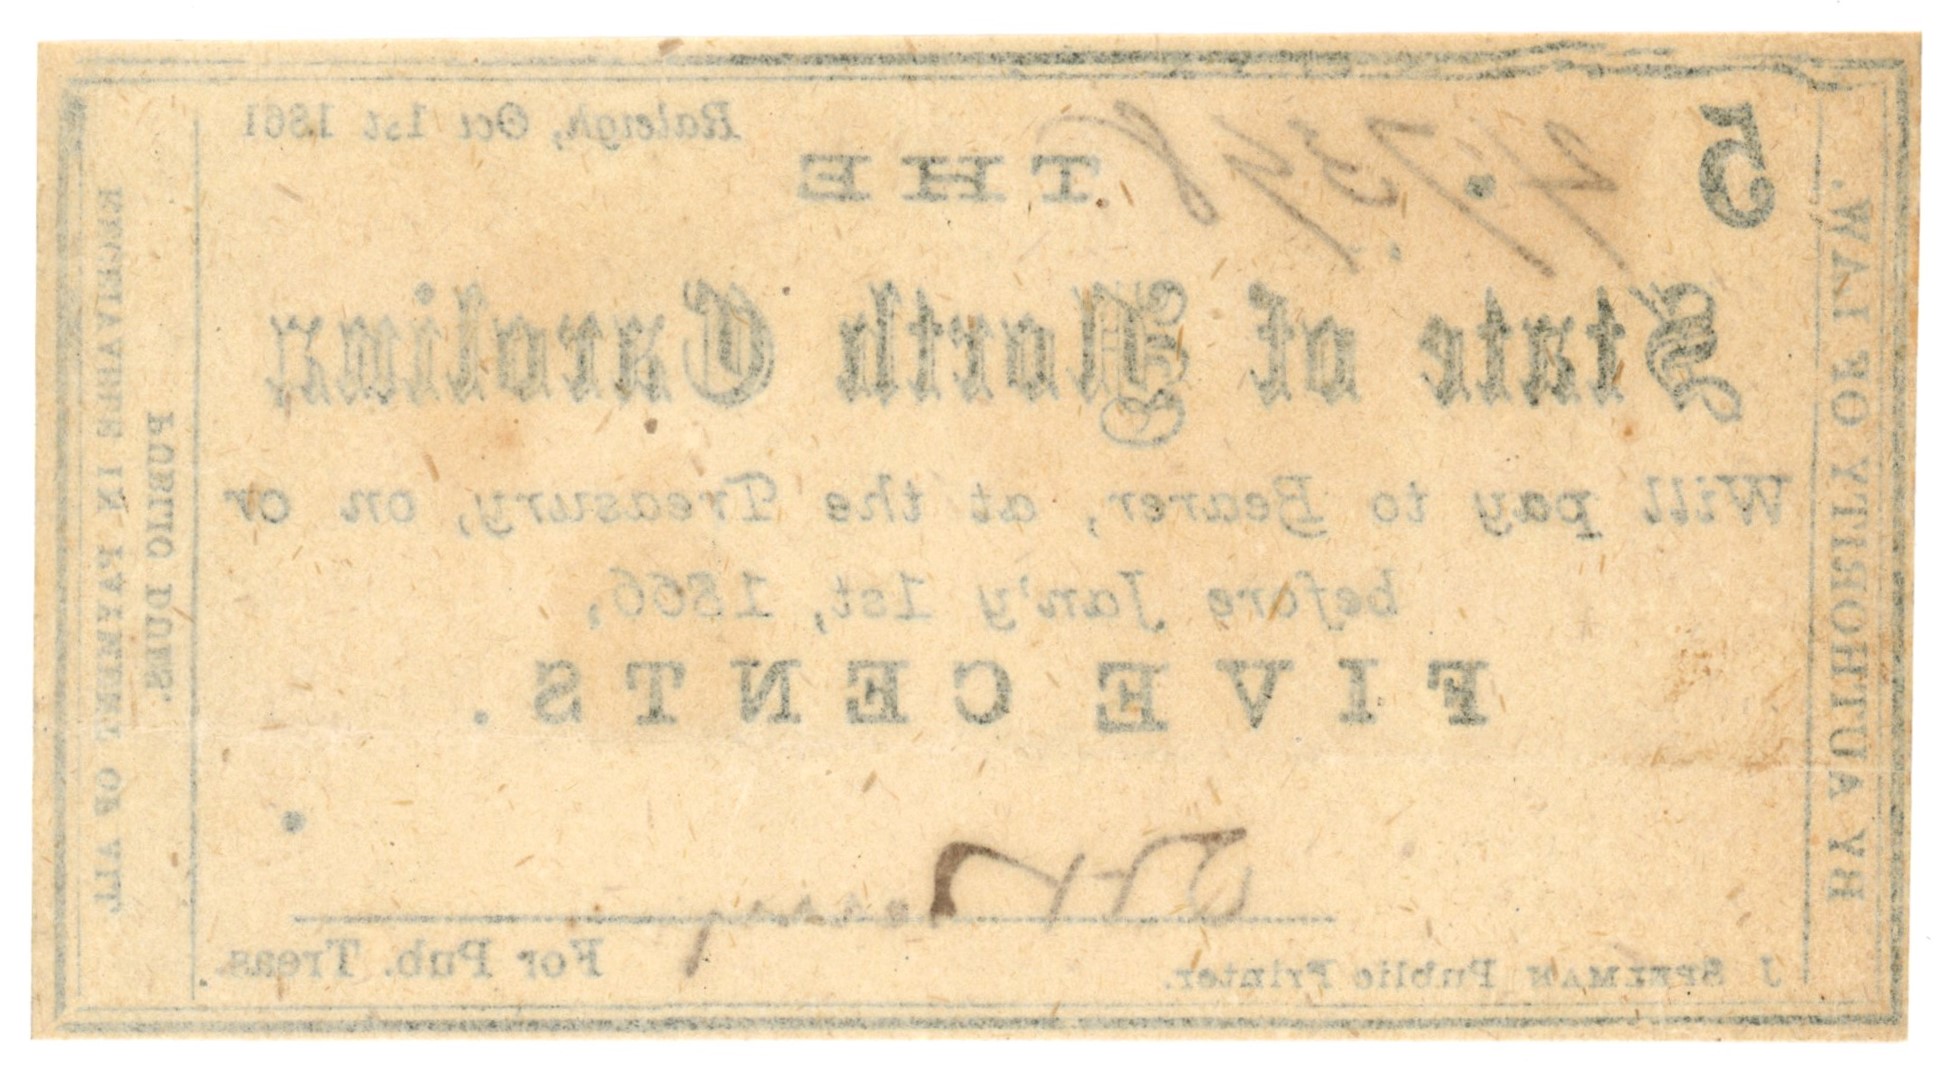 5
Raleigh, Oct 1st 1861
THE
State of North Carolina,
Will pay to Bearer, at the Treasury, on or
before Jan'y 1st, 1866,
FIVE CENTS.
For Pub. Treas.
J SPELMAN Public Printer.
BY AUTHORITY OF LAW.
RECEIVABLE IN PAYMENT OF ALL
PUBLIC DUES.